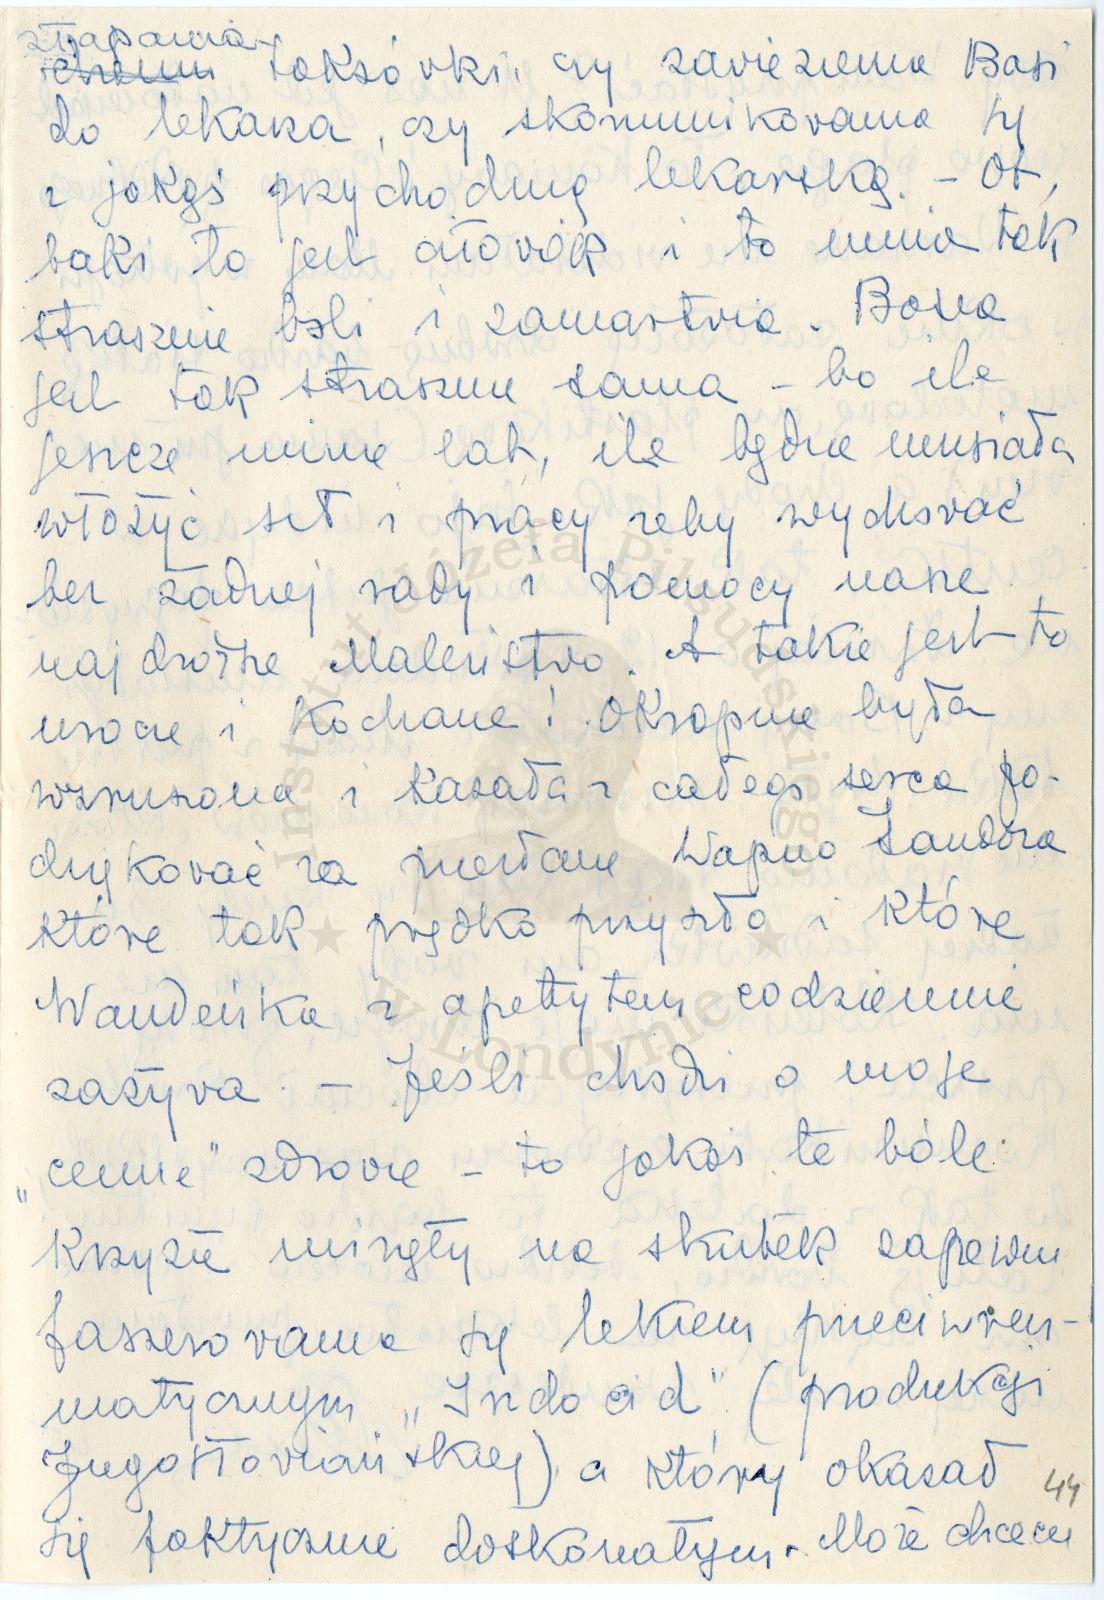 złapania
taksówki, czy zawiezienia Basi
do lekarza, czy skomunikowania się
z jakąś przychodnią lekarską. – Ot,
taki to jest człowiek i to mnie tak
strasznie boli i zamartwia. Basia
jest tak strasznie sama – bo ile
jeszcze minie lat, ile będzie musiała
włożyć sił i pracy żeby wychować
bez żadnej rady i pomocy nasze
najdroższe Maleństwo. A takie jest to
urocze i Kochane! Okropnie była
wzruszona i kazała z całego serca po-
dziękować za przesłane Wapno Sandoza
które tak prędko przyszło i które
Wandeńka z apettytem codziennie
zażywa. – Jeśli chodzi o moje
„cenne" zdrowie – to jakoś te bóle
Krzyża minęły na skutek zapewne
faszerowania się lekiem przeciwreu-
matycznym „Indocid" (produkcji
Jugosłowiańskiej) a który okazał
się faktycznie doskonałym. Może chcecie
44
Instytut Józefa Piłsudskiego
w Londynie